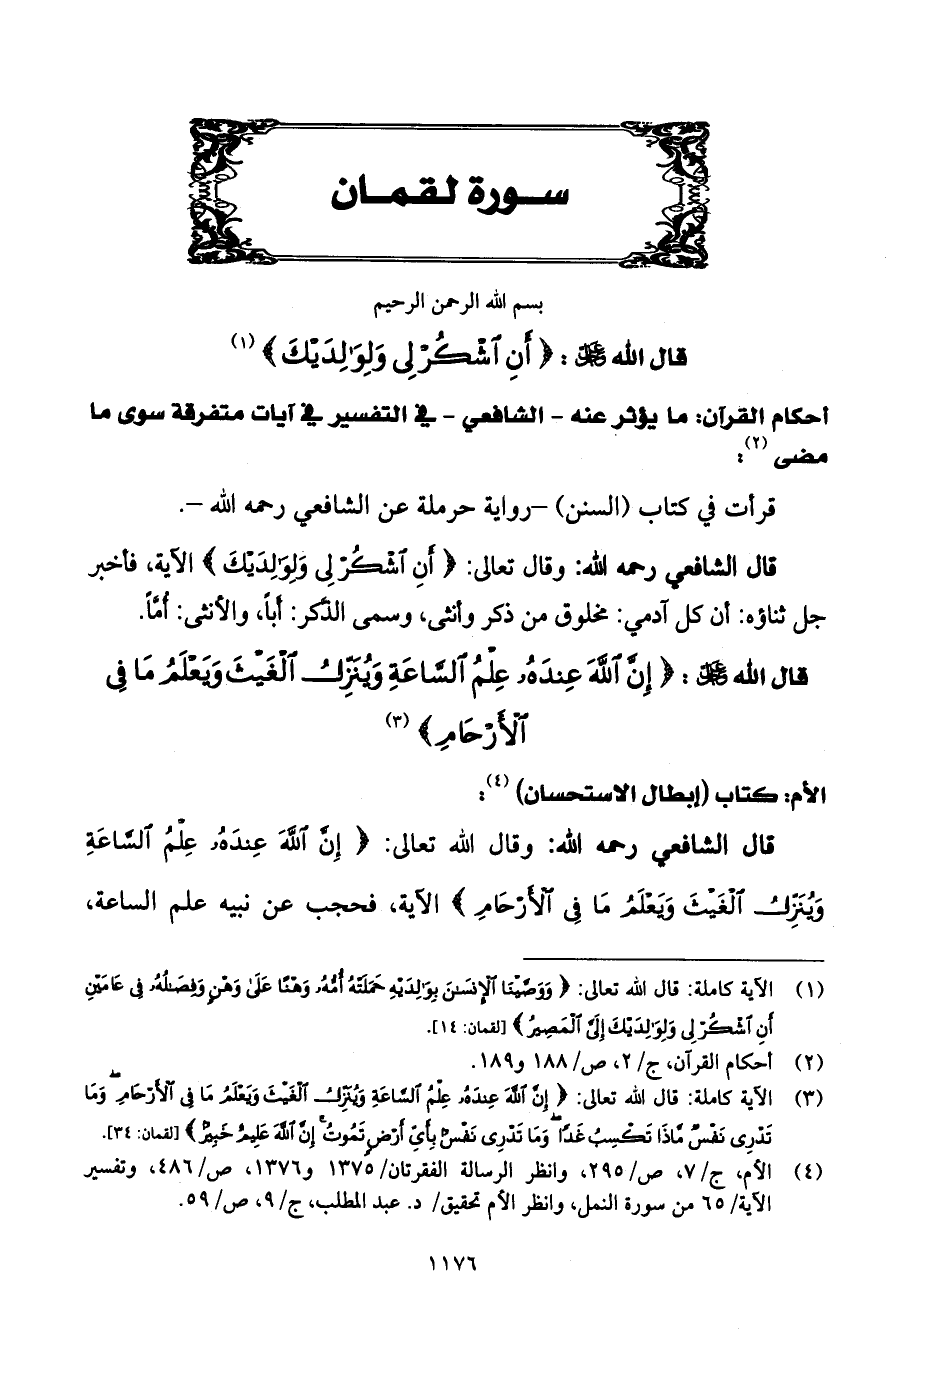 سورة لقمان
بسم الله الرحمن الرحيم
قال الله ﷻ : ﴿ أَنِ ٱشْكُرْ لِى وَلِوَٰلِدَيْكَ ﴾ (١)
أحكام القرآن: ما يؤثر عنه – الشافعي – في التفسير في آيات متفرقة سوى ما
مضى (٢):
قرأت في كتاب (السنن) –رواية حرملة عن الشافعي رحمه الله –.
قال الشافعي رحمه الله: وقال تعالى: ﴿ أَنِ ٱشْكُرْ لِى وَلِوَٰلِدَيْكَ ﴾ الآية، فأخبر
جل ثناؤه: أن كل آدمي: مخلوق من ذكر وأنثى، وسمى الذَّكر: أباً، والأنثى: أمَّاً.
قال الله ﷻ : ﴿ إِنَّ ٱللَّهَ عِندَهُۥ عِلْمُ ٱلسَّاعَةِ وَيُنَزِّلُ ٱلْغَيْثَ وَيَعْلَمُ مَا فِى
ٱلْأَرْحَامِ ﴾ (٣)
الأم: كتاب (إبطال الاستحسان) (٤):
قال الشافعي رحمه الله: وقال الله تعالى: ﴿ إِنَّ ٱللَّهَ عِندَهُۥ عِلْمُ ٱلسَّاعَةِ
وَيُنَزِّلُ ٱلْغَيْثَ وَيَعْلَمُ مَا فِى ٱلْأَرْحَامِ ﴾ الآية، فحجب عن نبيه علم الساعة،
(١) الآية كاملة: قال الله تعالى: ﴿ وَوَصَّيْنَا ٱلْإِنسَٰنَ بِوَٰلِدَيْهِ حَمَلَتْهُ أُمُّهُۥ وَهْنًا عَلَىٰ وَهْنٍ وَفِصَٰلُهُۥ فِى عَامَيْنِ
أَنِ ٱشْكُرْ لِى وَلِوَٰلِدَيْكَ إِلَىَّ ٱلْمَصِيرُ ﴾ [لقمان: ١٤].
(٢) أحكام القرآن، ج/ ٢، ص/ ١٨٨ و١٨٩.
(٣) الآية كاملة: قال الله تعالى: ﴿ إِنَّ ٱللَّهَ عِندَهُۥ عِلْمُ ٱلسَّاعَةِ وَيُنَزِّلُ ٱلْغَيْثَ وَيَعْلَمُ مَا فِى ٱلْأَرْحَامِ ۖ وَمَا
تَدْرِى نَفْسٌ مَّاذَا تَكْسِبُ غَدًا ۖ وَمَا تَدْرِى نَفْسٌۢ بِأَىِّ أَرْضٍ تَمُوتُ ۚ إِنَّ ٱللَّهَ عَلِيمٌ خَبِيرٌۢ ﴾ [لقمان: ٣٤].
(٤) الأم، ج/ ٧، ص/ ٢٩٥، وانظر الرسالة الفقرتان/ ١٣٧٥ و١٣٧٦، ص/ ٤٨٦، وتفسير
الآية/ ٦٥ من سورة النمل، وانظر الأم تحقيق/ د. عبد المطلب، ج/ ٩، ص/ ٥٩.
١١٧٦